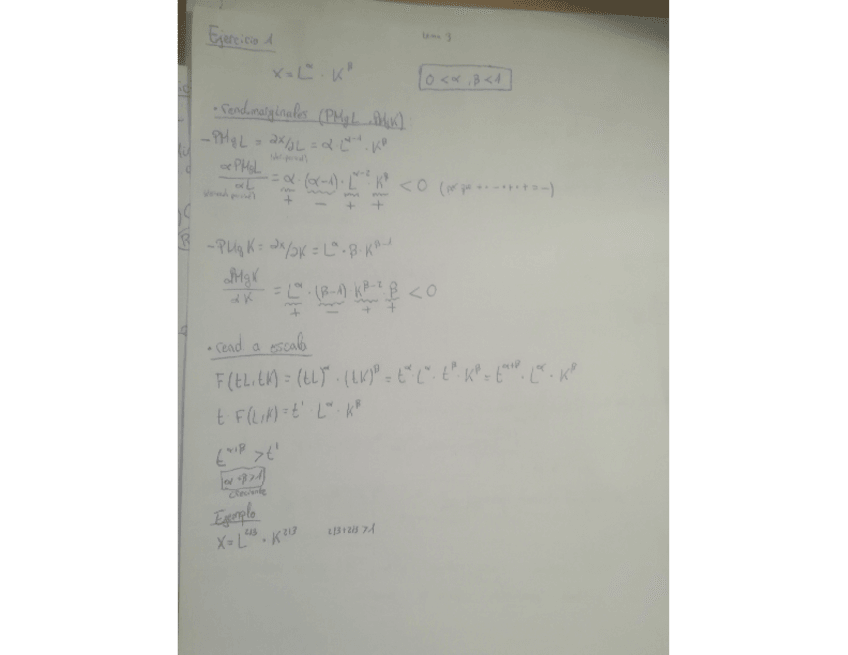 Ejercicio 1
X = L^α · K^β
0 < α, β < 1
· rend. marginales (PMgL, PMgK)
- PMgL = ∂x/∂L = α · L^α-1 · K^β
∂PMgL/∂L = α · (α-1) · L^α-2 · K^β < 0
+ - + +
- PMgK = ∂x/∂K = L^α · β · K^β-1
∂PMgK/∂K = L^α · (β-1) · K^β-2 · β < 0
+ - + +
· rend a escala
F(tL, tK) = (tL)^α · (tK)^β = t^α · L^α · t^β · K^β = t^α+β · L^α · K^β
t · F(L, K) = t^1 · L^α · K^β
t^α+β > t^1
α+β > 1
creciente
Ejemplo
X = L^2/3 · K^2/3 2/3+2/3 > 1